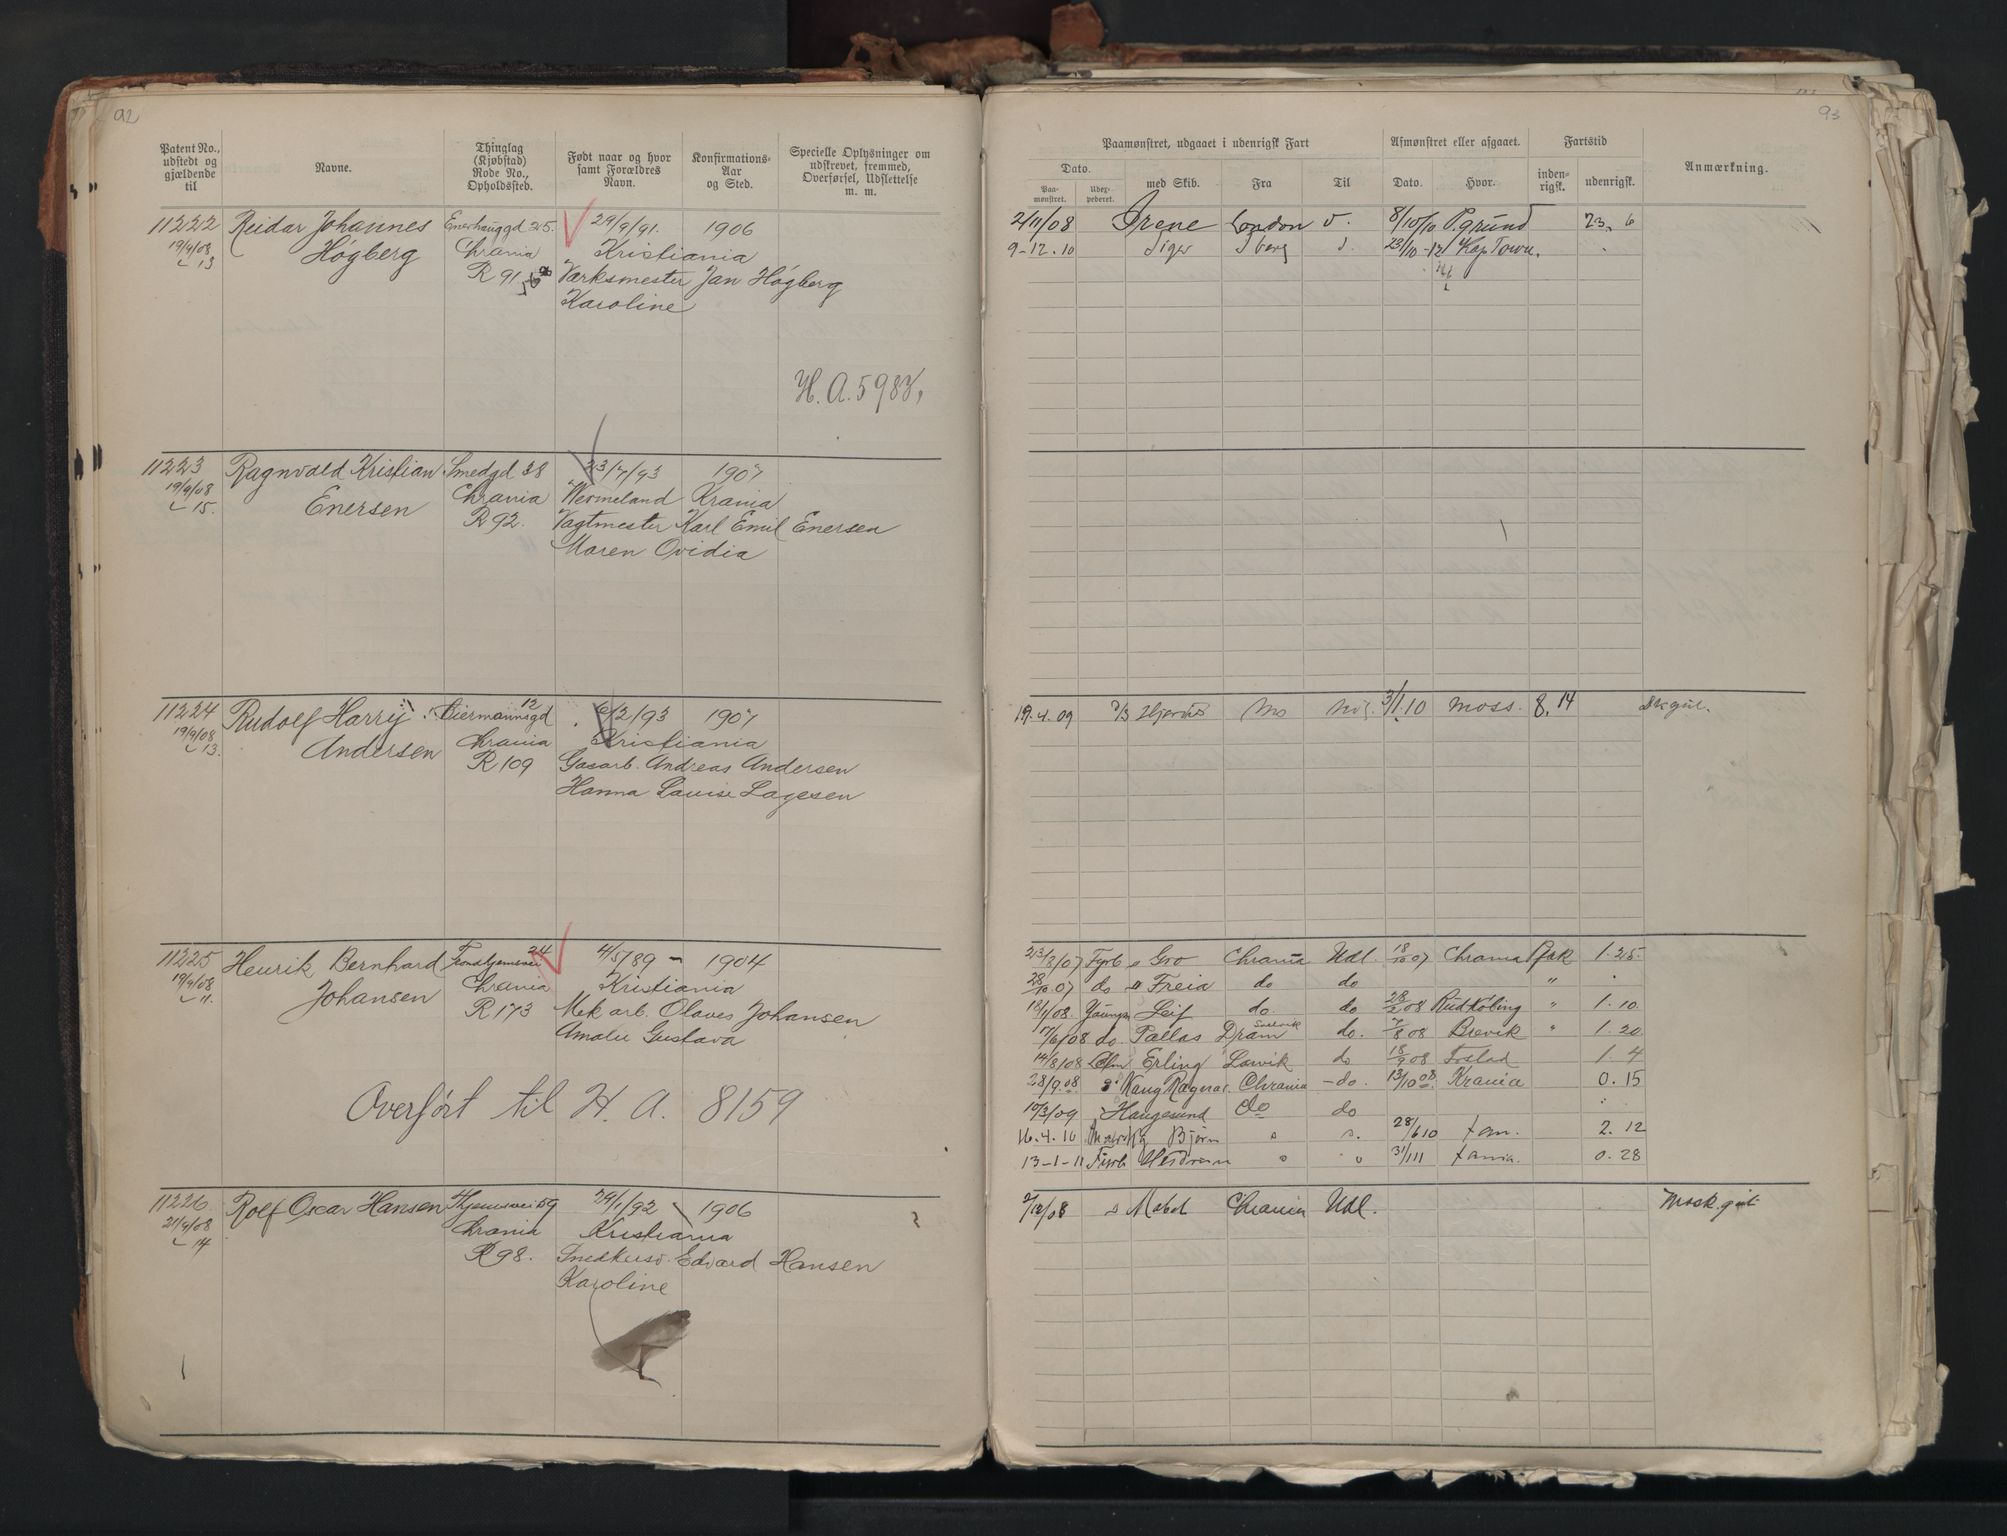 92
Patent No., udstedt og gjældende til
Navne.
Thinglag (Kjøbstad) Rode No., Opholdssted.
Født naar og hvor samt Forældres Navn.
Konfirmations-Aar og Sted.
Specielle Oplysninger om udskrevet, fremmed, Overførsel, Udslettelse m. m.
11222 Reidar Johannes Enerhauggd 25. 29/9/91. 1906
19/9/08 Høgberg Chrania Kristiania
13 R 91 Værksmester Jan Høgberg
Karoline
H. A. 5983,
11223 Ragnvald Kristian Smedgd 28 23/7/93 1907
19/9/08 Enersen Chrania Wermeland Krania
15. R 92. Vagtmester Karl Emil Enersen
Maren Ovidia
11224 Rudolf Harry 12
/2/93 1907
19/9/08 Andersen Chrania Kristiania
13. R 109 Gasarb. Andreas Andersen
Hanna Louise Lagesen
11225 Henrik Bernhard Trondhjemsvei 24 4/5/89 - 1904
19/9/08 Johansen Chrania Kristiania
11. R 173 Mek arb. Olaves Johansen
Amalie Gustava
Overført til H. A. 8159
11226 Rolf Oscar Hansen Thjemsvei 59 29/1/92 1906
21/9/08 Chrania Kristiania
14 R 98. Snedkersv. Edvard Hansen
Karoline
93
Paamønstret, udgaaet i udenrigsk Fart
Afmønstret eller afgaaet.
Fartstid
Anmærkning.
Dato.
Paa-mønstret.
Udex-pederet.
med Skib.
Fra
Til
Dato.
Hvor.
inden-rigsk.
udenrigsk.
2/11/08 Irene London v. 8/10/10 P.grund 23. 6
9-12.10 Tiger 23/10-12 Kap Town.
19.4.09 Mo 3/1.10 Moss. 8. 14
23/8/07 Fyrb Gro Chrania Udl. 18/10 07 Chrania 1. 25.
28/10 07 do Freia do do "
18/1/08 Leif do. do 28/2 08 Rudkøbing " 1. 10
17/6/08 do. Pallas Dram Svelvik do. 7/8 08 Brevik " 1. 20
14/8/08 Erling Larvik do 18/9 08 1. 4
28/9.08 Kong Ragnar Chrania -do. 13/10 08 Krania 0. 15
10/3/09 Haugesund do do
16.4.10 Bjørn 28/6 10 2. 12
13-1-11 Fyrb 31/1 11 0. 28
2/12/08 Mabel Chrania Udl.